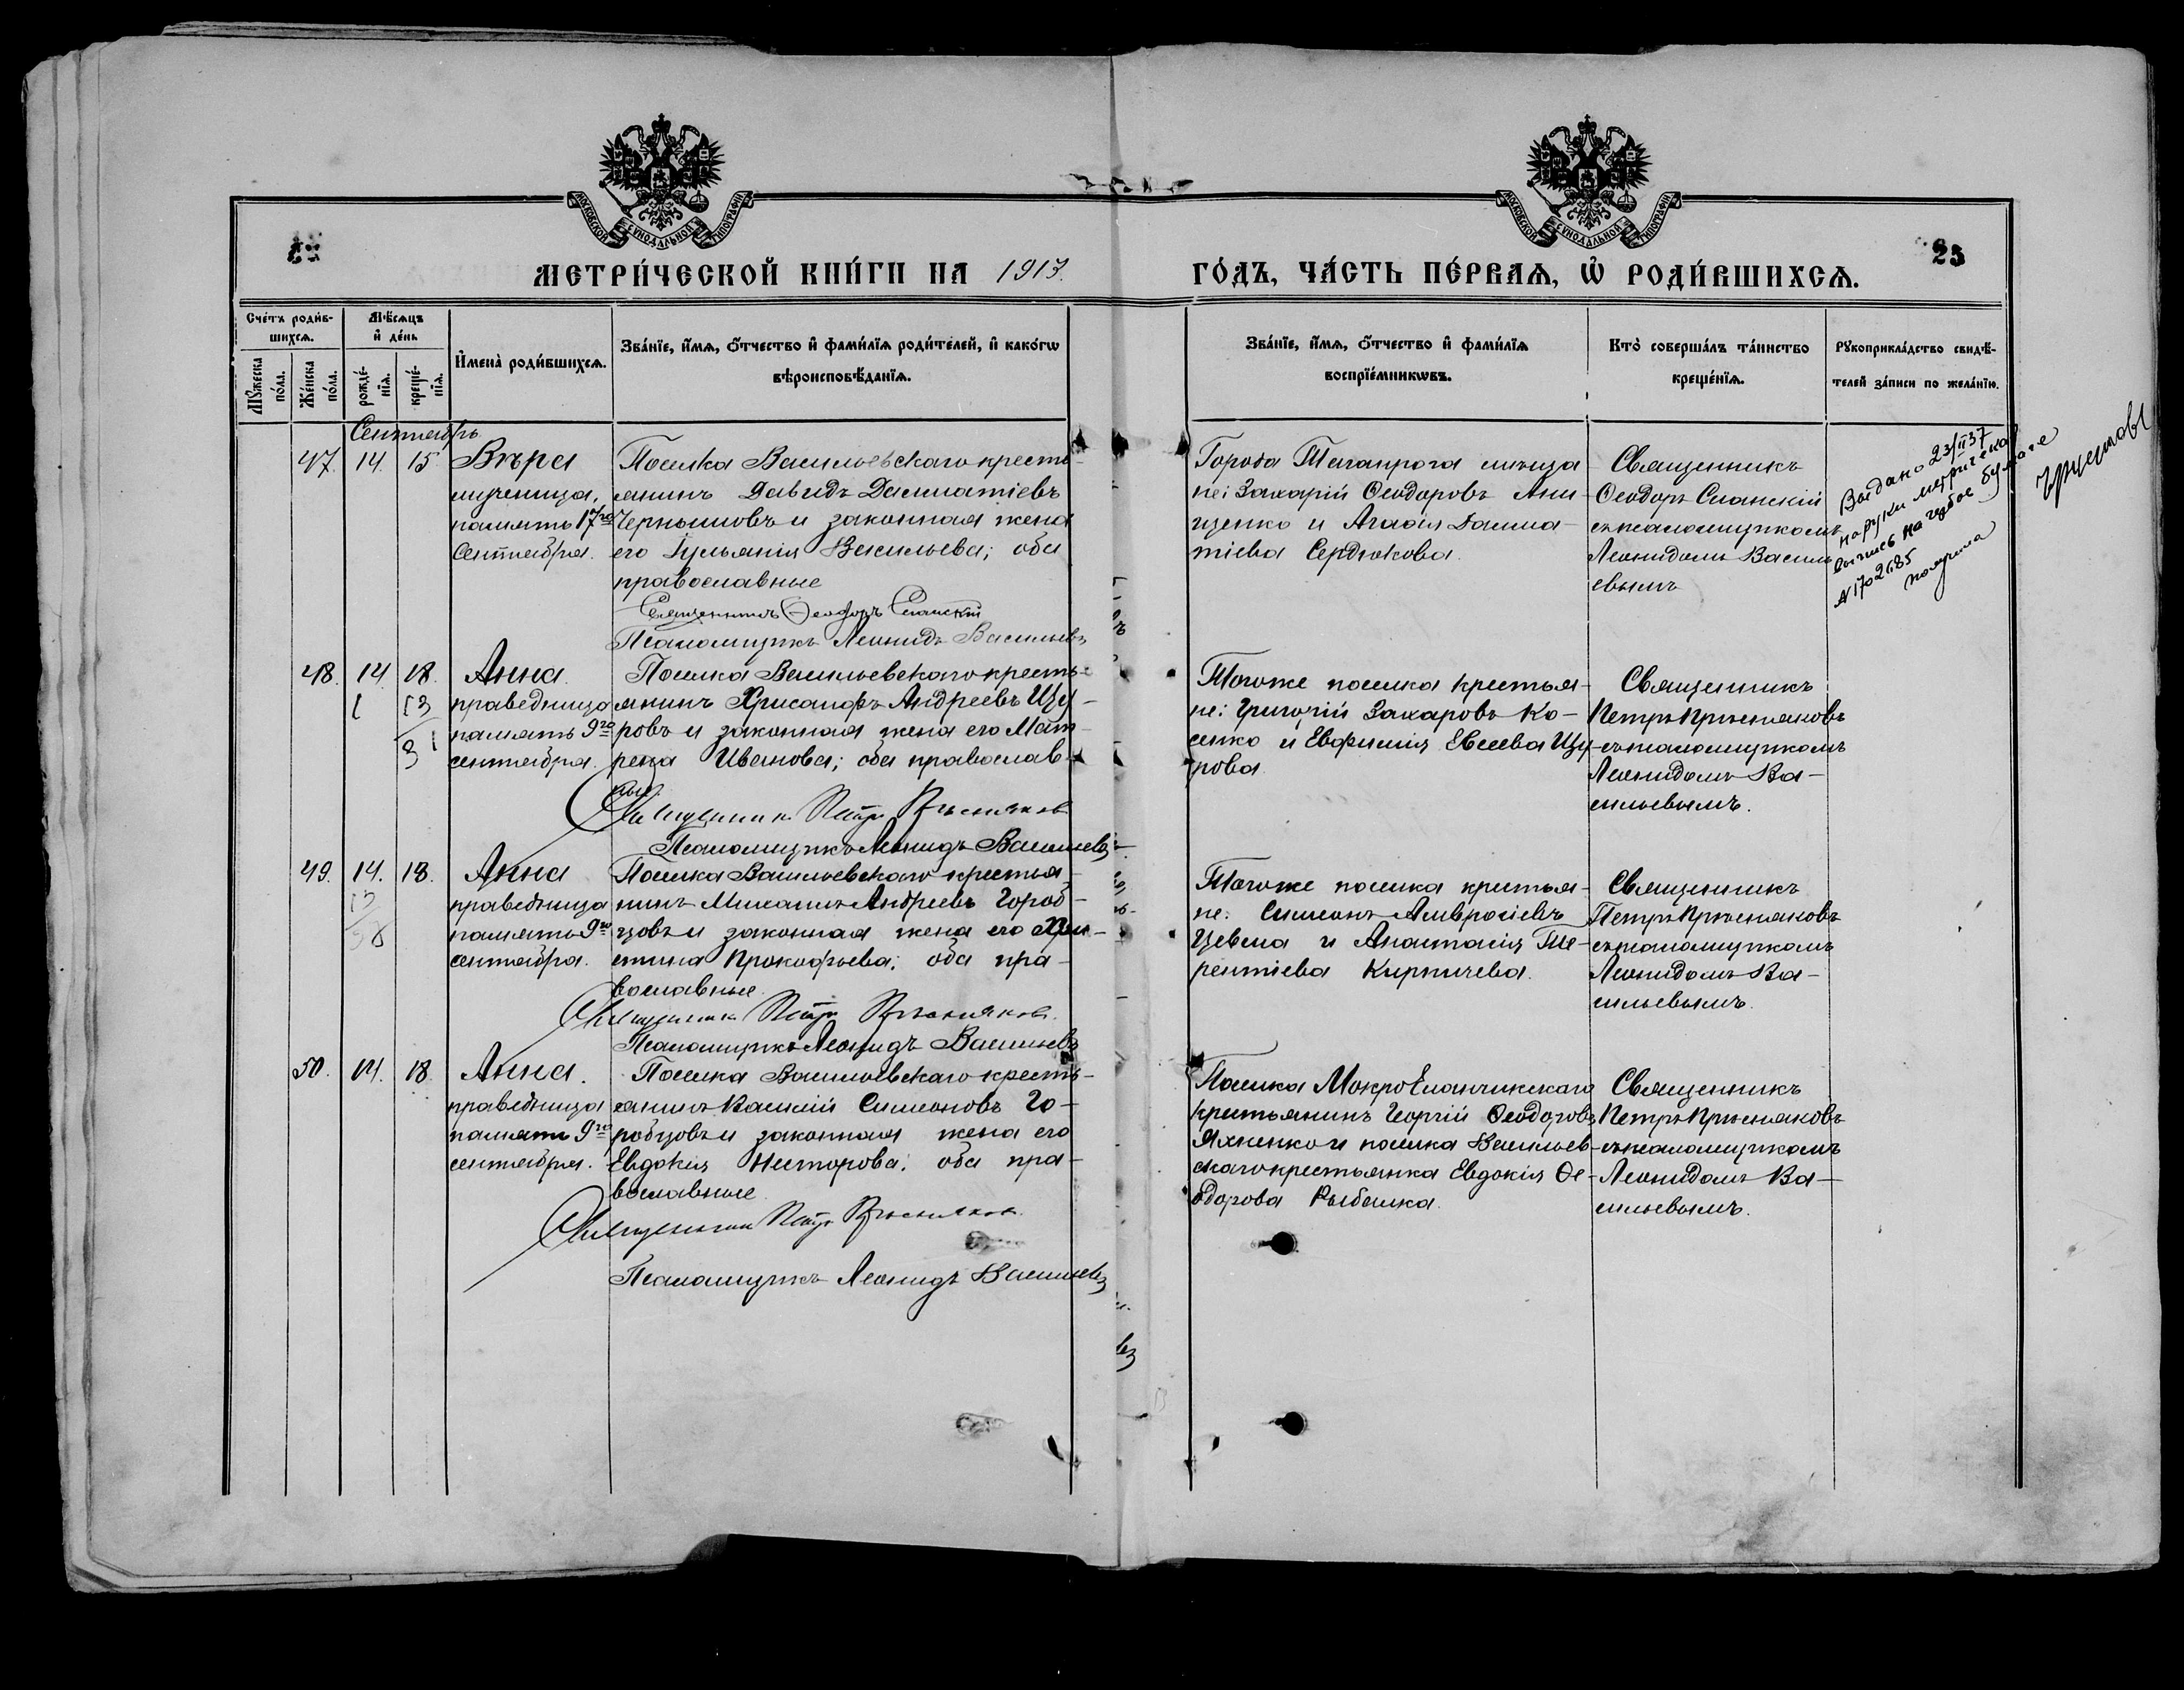 МОСКОВСКОЙ СУНОДАЛЬНОЙ ТИПОГРАФІИ
МОСКОВСКОЙ СУНОДАЛЬНОЙ ТИПОГРАФІИ
23
МЕТРИ́ЧЕСКОЙ КНИ́ГИ НА 1913.
ГО́ДЪ, ЧА́СТЬ ПЕ́РВАѦ, Ѡ҆ РОДИ́ВШИХСѦ.
Сче́тъ роди́в-
шихсѧ.
Мꙋ́жеска по́ла.
Же́нска по́ла.
Мѣ́сѧцъ
и҆ де́нь
рожде́-
нїѧ.
креще́-
нїѧ.
И҆мена̀ роди́вшихсѧ.
Зва́нїе, и҆́мѧ, ѻ҆́тчество и҆ фами́лїѧ роди́телей, и҆ како́гѡ
вѣроисповѣ́данїѧ.
Зва́нїе, и҆́мѧ, ѻ҆́тчество и҆ фами́лїѧ
воспрїе́мникѡвъ.
Кто̀ соверша́лъ та́инство
креще́нїѧ.
Рꙋкоприкла́дство свидѣ́-
телей за́писи по жела́нїю.
Сентябрь
47. 14. 15. Вѣра
мученица,
память 17го
Сентября.
Поселка Васильевскаго кресть-
янинъ Давидъ Далматіевъ
Чернышовъ и законная жена
его Іульянія Васильева; оба
православные
Священникъ Ѳеодоръ Спасскій
Псаломщикъ Леонидъ Васильевъ
Города Таганрога мѣща
не: Захарій Ѳеодоровъ Они
щенко и Агаѳія Далма-
тіева Сердюкова.
Священникъ
Ѳеодоръ Спасскій
съ псаломщикомъ
Леонидомъ Василь
евымъ
Выдано 23/II 37
на руки метрическая
выпись на гербов бумаге
N 1702685
получила
48. 14 18. Анна.
праведница
память 9го
сентября.
Поселка Васильевскаго кресть-
янинъ Хрисанфъ Андреевъ Щу-
ровъ и законная жена его Мат-
рена Иванова; оба православ-
ные.
Священникъ Петръ Прѣсняковъ
Псаломщикъ Леонидъ Васильевъ
Тогоже поселка крестья-
не: Григорій Захаровъ Ко-
сенко и Евфимія Евсеева Щу-
рова.
Священникъ
Петръ Прѣсняковъ
съ псаломщикомъ
Леонидомъ Ва-
сильевымъ.
49. 14. 18. Анна
праведница
память 9го
сентября.
Поселка Васильевскаго крестья-
нинъ Михаилъ Андреевъ Город-
цовъ и законная жена его Хри-
стина Прокофьева; оба пра-
вославные.
Священникъ Петръ Прѣсняковъ.
Псаломщикъ Леонидъ Васильевъ
Тогоже поселка крестья-
не: Симеонъ Амвросіевъ
Цевма и Анастасія Те-
рентіева Кирпичева.
Священникъ
Петръ Прѣсняковъ
съ псаломщикомъ
Леонидомъ Ва-
сильевымъ.
50. 14. 18. Анна.
праведница
память 9го
сентября.
Поселка Васильевскаго кресть-
янинъ Василій Симеоновъ Го-
робцовъ и законная жена его
Евдокія Несторова; оба пра-
вославные.
Священникъ Петръ Прѣсняковъ.
Псаломщикъ Леонидъ Васильевъ
Поселка Мокро Еланчикскаго
крестьянинъ Георгій Ѳеодоровъ
Яхненко и поселка Васильев-
скаго крестьянка Евдокія Ѳе-
одорова Рыбалка.
Священникъ
Петръ Прѣсняковъ
съ псаломщикомъ
Леонидомъ Ва-
сильевымъ.